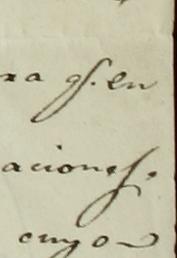 ra q.e en
aciones.
cuyo